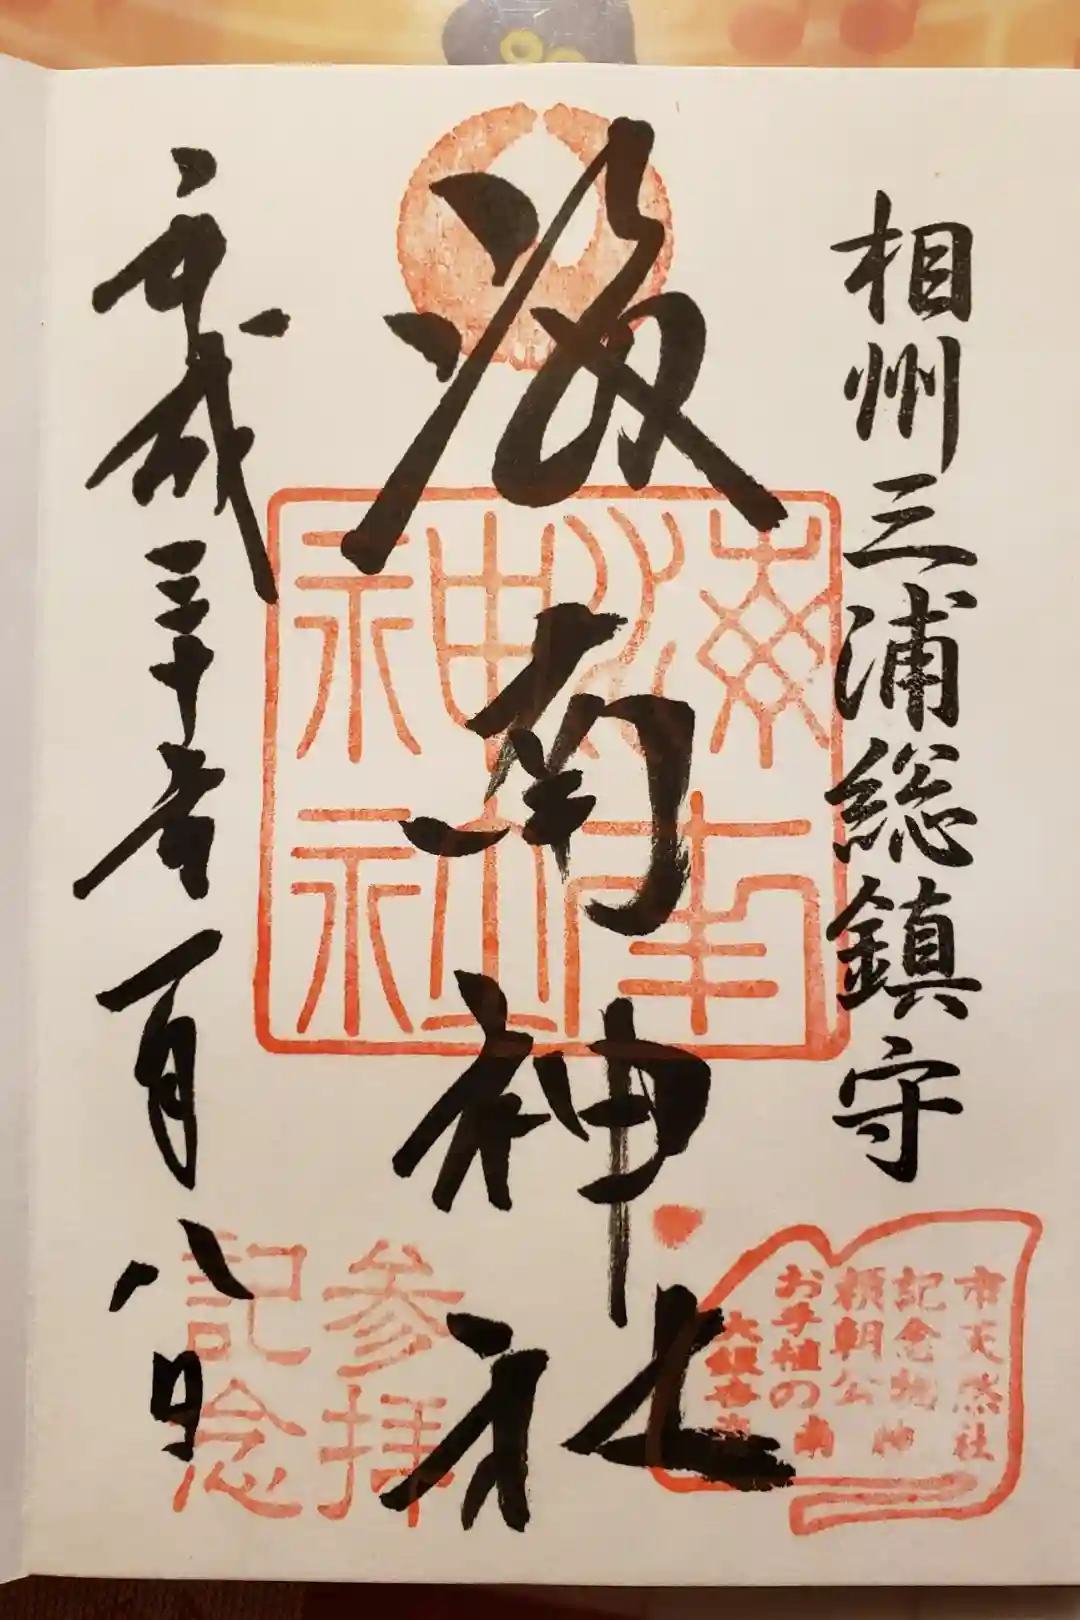 相州三浦総鎮守
海南神社
平成三十年一月八日
海南神社
参拝
記念
市天然
記念物
頼朝公
お手植の
大銀杏
海南神社